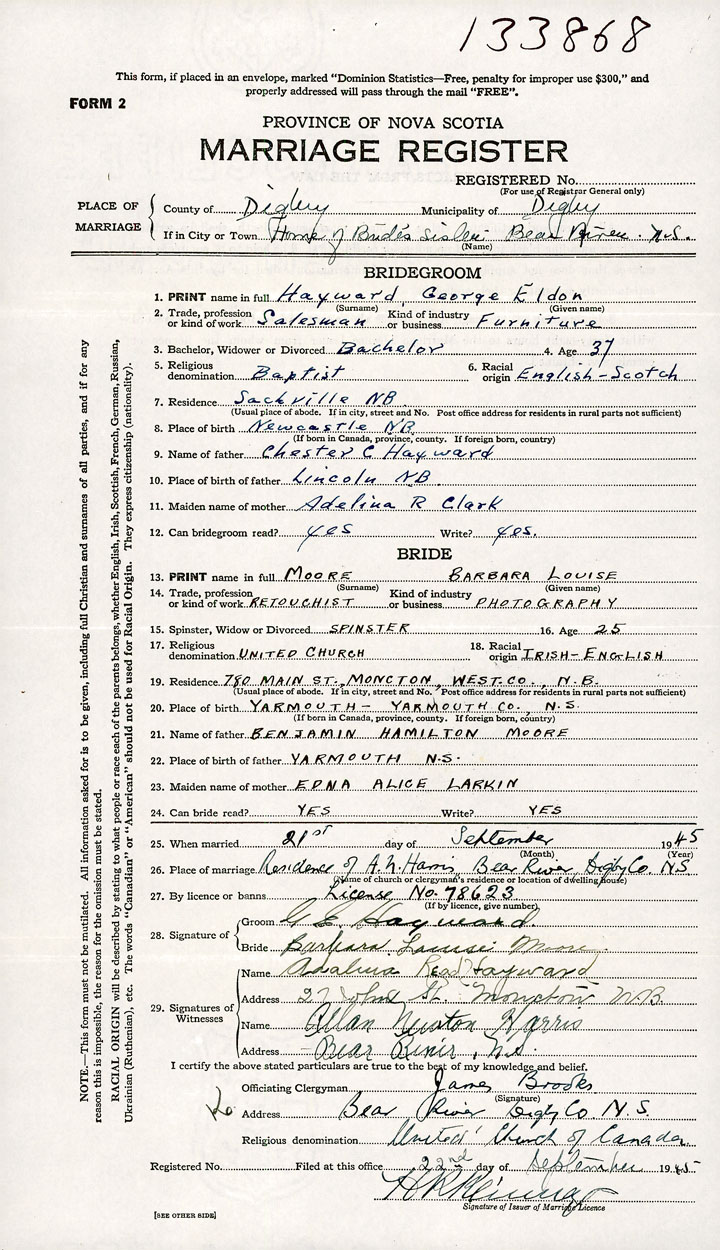 133868
This form, if placed in an envelope, marked “Dominion Statistics—Free, penalty for improper use $300,” and
properly addressed will pass through the mail “FREE”.
FORM 2
PROVINCE OF NOVA SCOTIA
MARRIAGE REGISTER
REGISTERED No.
(For use of Registrar General only)
PLACE OF MARRIAGE
County of Digby Municipality of Digby
If in City or Town Home of Bride's Sister Bear River. N.S.
(Name)
BRIDEGROOM
1. PRINT name in full Hayward George Eldon
(Surname) (Given name)
2. Trade, profession or kind of work Salesman Kind of industry or business Furniture
3. Bachelor, Widower or Divorced Bachelor 4. Age 37
5. Religious denomination Baptist 6. Racial origin English-Scotch
7. Residence Sackville NB
(Usual place of abode. If in city, street and No. Post office address for residents in rural parts not sufficient)
8. Place of birth Newcastle NB
(If born in Canada, province, county. If foreign born, country)
9. Name of father Chester C Hayward
10. Place of birth of father Lincoln NB
11. Maiden name of mother Adelina R Clark
12. Can bridegroom read? yes Write? yes.
BRIDE
13. PRINT name in full MOORE BARBARA LOUISE
(Surname) (Given name)
14. Trade, profession or kind of work RETOUCHIST Kind of industry or business PHOTOGRAPHY
15. Spinster, Widow or Divorced SPINSTER 16. Age 25
17. Religious denomination UNITED CHURCH 18. Racial origin IRISH-ENGLISH
19. Residence 780 MAIN ST., MONCTON, WEST. CO., N.B.
(Usual place of abode. If in city, street and No. Post office address for residents in rural parts not sufficient)
20. Place of birth YARMOUTH - YARMOUTH CO., N.S.
(If born in Canada, province, county. If foreign born, country)
21. Name of father BENJAMIN HAMILTON MOORE
22. Place of birth of father YARMOUTH N.S.
23. Maiden name of mother EDNA ALICE LARKIN
24. Can bride read? YES Write? YES
25. When married 21st day of September 1945
(Month) (Year)
26. Place of marriage Residence of A.N. Harris Bear River Digby Co. N.S.
(Name of church or clergyman's residence or location of dwelling house)
27. By licence or banns License No. 78623
(If by licence, give number)
28. Signature of
Groom G E Hayward
Bride Barbara Louise Moore
29. Signatures of Witnesses
Name Adalina Read Hayward
Address 27 John St. Moncton N.B.
Name Allan Newton Harris
Address Bear River, N.S.
I certify the above stated particulars are true to the best of my knowledge and belief.
Officiating Clergyman James Brooks
(Signature)
Address Bear River Digby Co. N.S.
Religious denomination United Church of Canada
Registered No. Filed at this office 22nd day of September 1945
Signature of Issuer of Marriage Licence
[SEE OTHER SIDE]
NOTE.—This form must not be mutilated. All information asked for is to be given, including full Christian and surnames of all parties, and if for any
reason this is impossible, the reason for the omission must be stated.
RACIAL ORIGIN will be described by stating to what people or race each of the parents belongs, whether English, Irish, Scottish, French, German, Russian,
Ukrainian (Ruthenian), etc. The words “Canadian” or “American” should not be used for Racial Origin. They express citizenship (nationality).